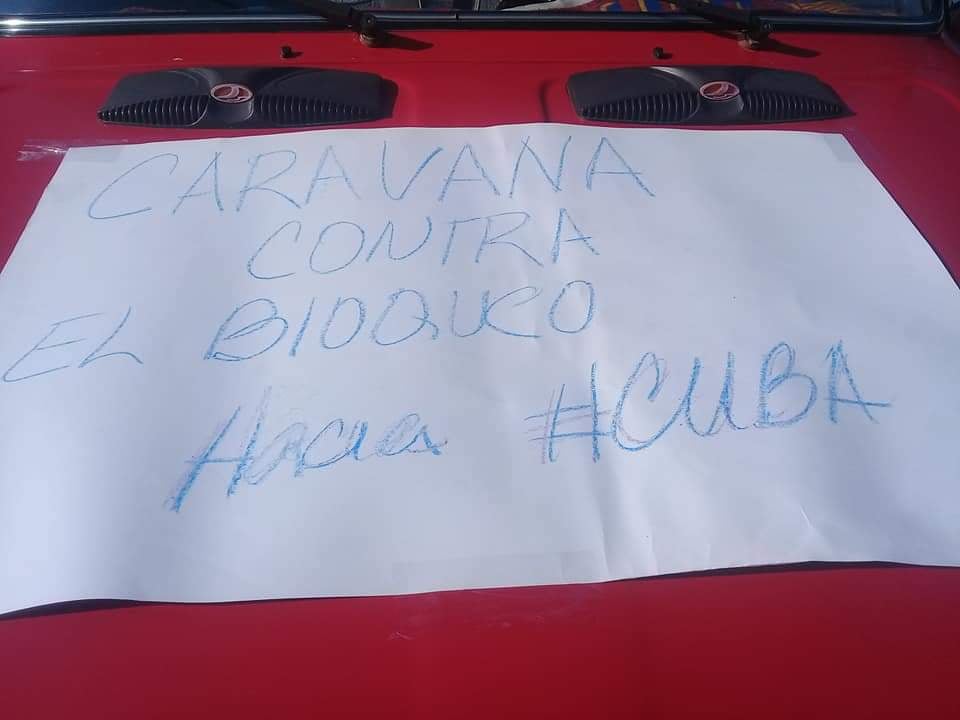 CARAVANA
CONTRA
EL BIOQUEO
Hacia #CUBA